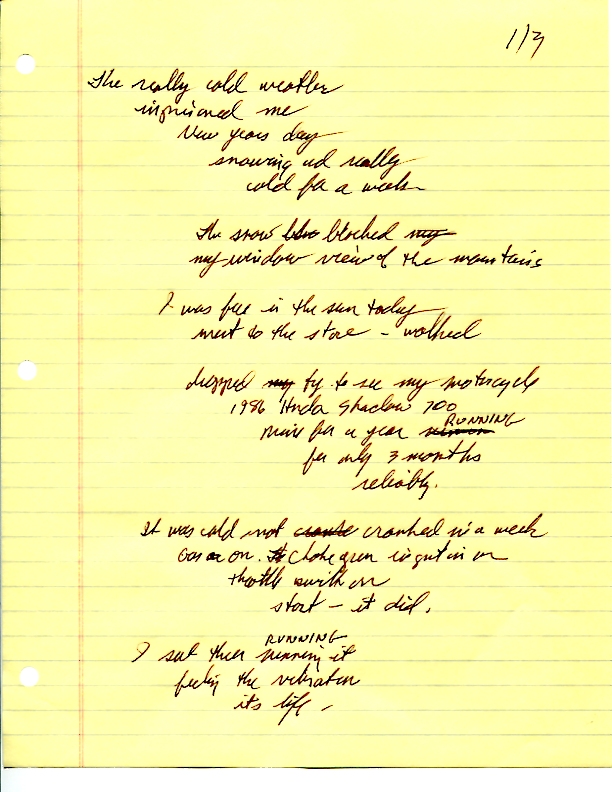 1/3
The really cold weather
imprisoned me
New years day
snowing ad really
cold for a week
The snow blocked my
my window view of the mountains
I was free in the sun today
went to the store - walked
dropped my by to see my motorcycle
1986 Honda Shadow 700
mine for a year RUNNING
for only 3 months
reliably.
It was cold not cranked in a week
Gas on. choke ignition
throttle switch on
start - it did.
RUNNING
I sat there running it
feeling the vibration
its life -